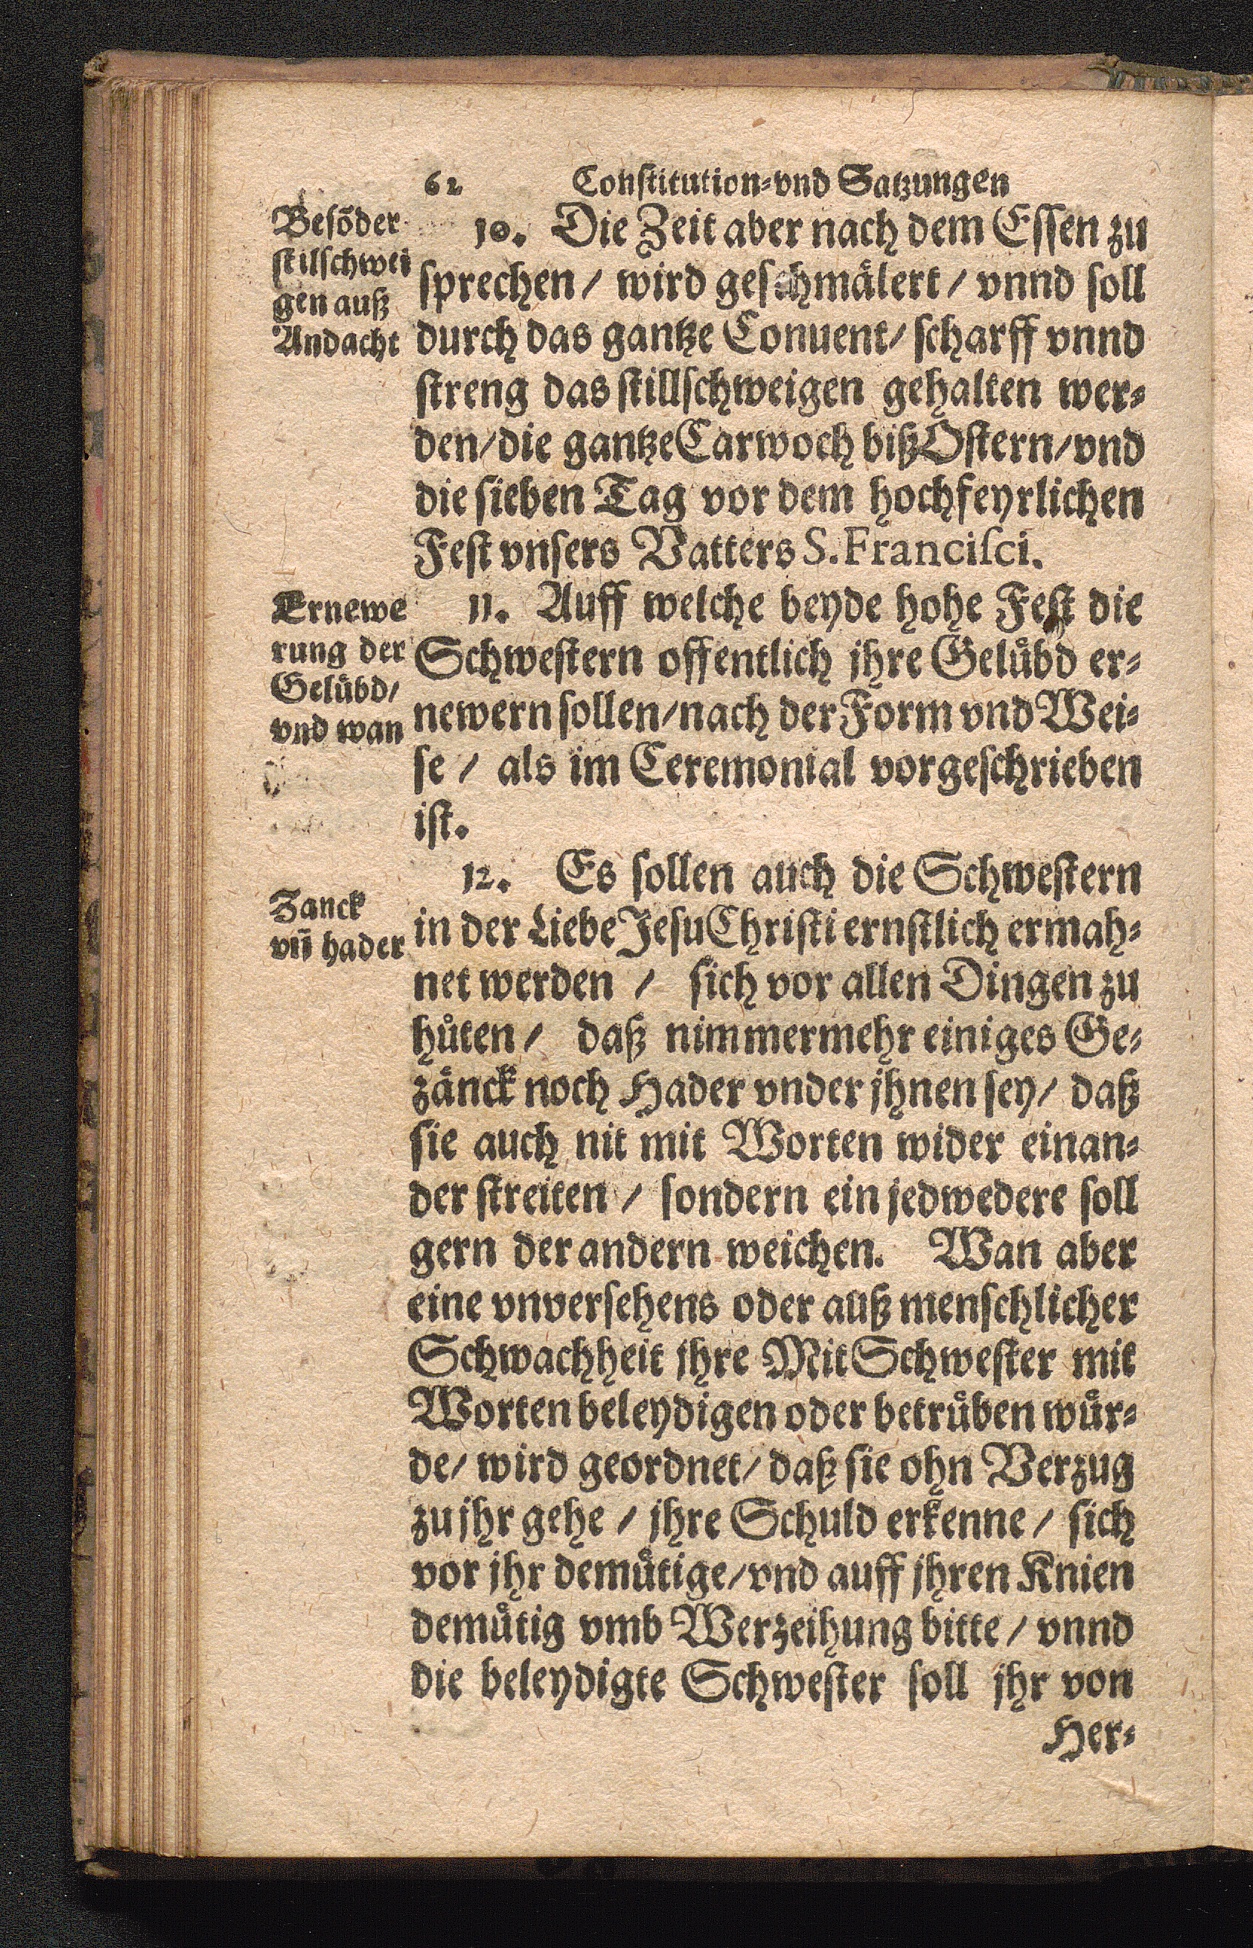 62 Constitution-vnd Satzungen
Besőder
stilschwei
gen auß
Andacht
10. Die Zeit aber nach dem Essen zu
sprechen / wird geschmälert / vnnd soll
durch das gantze Conuent / scharff vnnd
streng das stillschweigen gehalten wer-
den / die gantze Carwoch biß Ostern / vnd
die sieben Tag vor dem hochfeyrlichen
Fest vnsers Vatters S. Francisci.
Ernewe
rung der
Gelübd /
vnd wan
11. Auff welche beyde hohe Fest die
Schwestern offentlich jhre Gelübd er-
newern sollen / nach der Form vnd Wei-
se / als im Ceremonial vorgeschrieben
ist.
Zanck
vn̄ hader
12. Es sollen auch die Schwestern
in der Liebe Jesu Christi ernstlich ermah-
net werden / sich vor allen Dingen zu
hüten / daß nimmermehr einiges Ge-
zänck noch Hader vnder jhnen sey / daß
sie auch nit mit Worten wider einan-
der streiten / sondern ein jedwedere soll
gern der andern weichen. Wan aber
eine vnversehens oder auß menschlicher
Schwachheit jhre MitSchwester mit
Worten beleydigen oder betrüben wür-
de / wird geordnet / daß sie ohn Verzug
zu jhr gehe / jhre Schuld erkenne / sich
vor jhr demütige / vnd auff jhren Knien
demütig vmb Werzeihung bitte / vnnd
die beleydigte Schwester soll jhr von
Her-